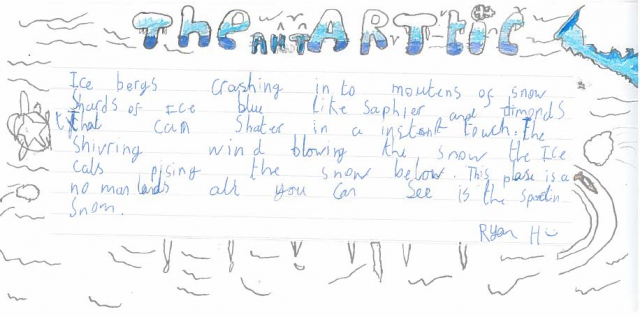 The ANTARTtic
Ice bergs crashing in to moutens of snow
Shards of Ice blue like Saphier and dimonds
that can Shater in a instant touch. The
Shivring wind blowing the snow the Ice
cals pising the snow below. This plase is a
no man lands all you can See is the
Snow.
Ryan H